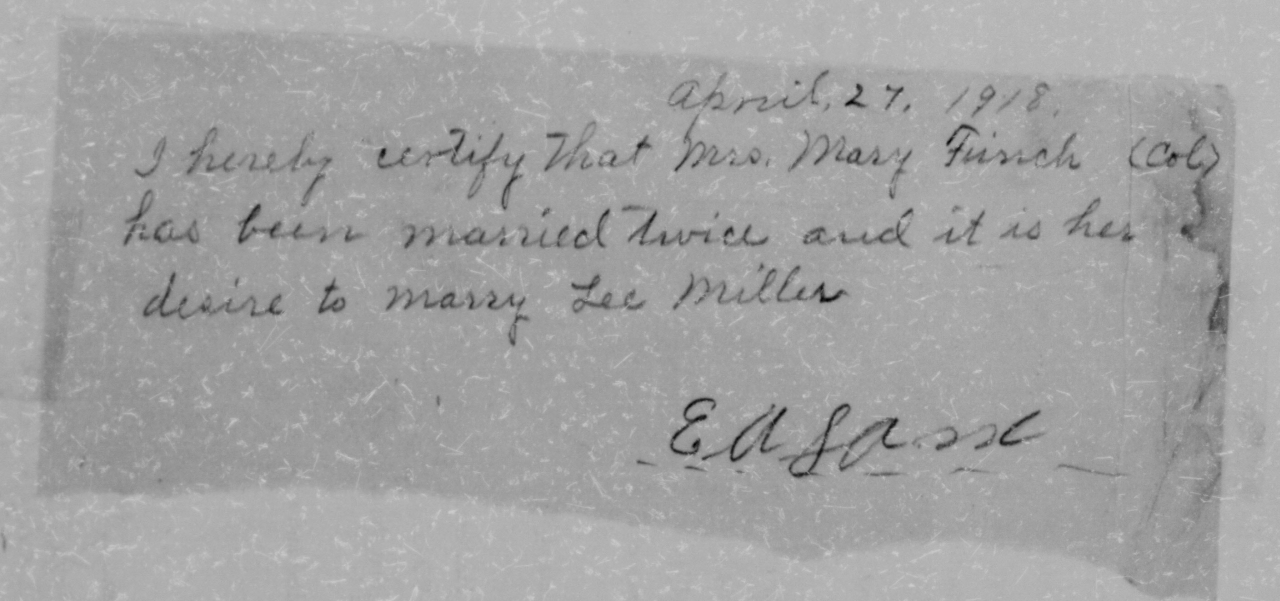 April, 27, 1918.
I hereby certify That Mrs. Mary (Col)
has been married Twice and it is her
desire to marry Lee Miller
E A